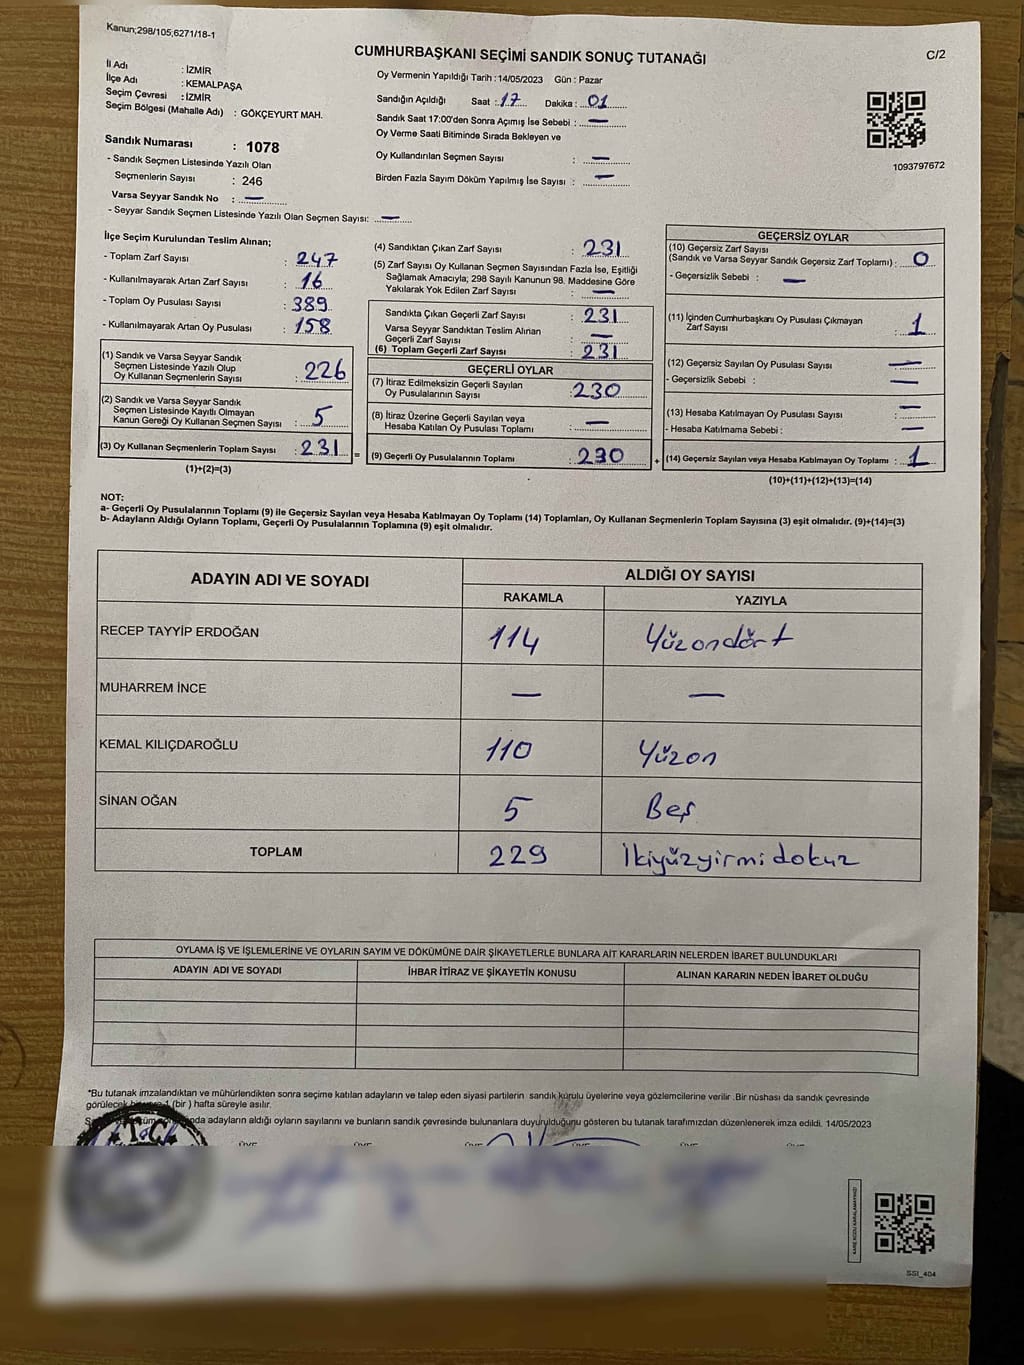 Kanun;298/105,6271/18-1
CUMHURBAŞKANI SEÇİMİ SANDIK SONUÇ TUTANAĞI
C/2
İl Adı : İZMİR
İlçe Adı : KEMALPAŞA
Seçim Çevresi : İZMİR
Seçim Bölgesi (Mahalle Adı) : GÖKÇEYURT MAH.
Sandık Numarası : 1078
- Sandık Seçmen Listesinde Yazılı Olan
Seçmenlerin Sayısı : 246
Varsa Seyyar Sandık No : —
- Seyyar Sandık Seçmen Listesinde Yazılı Olan Seçmen Sayısı: —
Oy Vermenin Yapıldığı Tarih : 14/05/2023 Gün : Pazar
Sandığın Açıldığı Saat : 17 Dakika : 01
Sandık Saat 17:00'den Sonra Açımış İse Sebebi : —
Oy Verme Saati Bitiminde Sırada Bekleyen ve
Oy Kullandırılan Seçmen Sayısı : —
Birden Fazla Sayım Döküm Yapılmış İse Sayısı : —
1093797672
İlçe Seçim Kurulundan Teslim Alınan;
- Toplam Zarf Sayısı : 247
- Kullanılmayarak Artan Zarf Sayısı : 16
- Toplam Oy Pusulası Sayısı : 389
- Kullanılmayarak Artan Oy Pusulası : 158
(1) Sandık ve Varsa Seyyar Sandık
Seçmen Listesinde Yazılı Olup
Oy Kullanan Seçmenlerin Sayısı : 226
(2) Sandık ve Varsa Seyyar Sandık
Seçmen Listesinde Kayıtlı Olmayan
Kanun Gereği Oy Kullanan Seçmen Sayısı : 5
(3) Oy Kullanan Seçmenlerin Toplam Sayısı : 231
(1)+(2)=(3)
(4) Sandıktan Çıkan Zarf Sayısı : 231
(5) Zarf Sayısı Oy Kullanan Seçmen Sayısından Fazla İse, Eşitliği
Sağlamak Amacıyla; 298 Sayılı Kanunun 98. Maddesine Göre
Yakılarak Yok Edilen Zarf Sayısı : —
Sandıkta Çıkan Geçerli Zarf Sayısı : 231
Varsa Seyyar Sandıktan Teslim Alınan
Geçerli Zarf Sayısı : —
(6) Toplam Geçerli Zarf Sayısı : 231
GEÇERLİ OYLAR
(7) İtiraz Edilmeksizin Geçerli Sayılan
Oy Pusulalarının Sayısı : 230
(8) İtiraz Üzerine Geçerli Sayılan veya
Hesaba Katılan Oy Pusulası Toplamı : —
= (9) Geçerli Oy Pusulalarının Toplamı : 230 +
GEÇERSİZ OYLAR
(10) Geçersiz Zarf Sayısı
(Sandık ve Varsa Seyyar Sandık Geçersiz Zarf Toplamı) : 0
- Geçersizlik Sebebi : —
(11) İçinden Cumhurbaşkanı Oy Pusulası Çıkmayan
Zarf Sayısı : 1
(12) Geçersiz Sayılan Oy Pusulası Sayısı : —
- Geçersizlik Sebebi : —
(13) Hesaba Katılmayan Oy Pusulası Sayısı : —
- Hesaba Katılmama Sebebi : —
(14) Geçersiz Sayılan veya Hesaba Katılmayan Oy Toplamı : 1
(10)+(11)+(12)+(13)=(14)
NOT:
a- Geçerli Oy Pusulalarının Toplamı (9) ile Geçersiz Sayılan veya Hesaba Katılmayan Oy Toplamı (14) Toplamları, Oy Kullanan Seçmenlerin Toplam Sayısına (3) eşit olmalıdır. (9)+(14)=(3)
b- Adayların Aldığı Oyların Toplamı, Geçerli Oy Pusulalarının Toplamına (9) eşit olmalıdır.
ADAYIN ADI VE SOYADI ALDIĞI OY SAYISI
RAKAMLA YAZIYLA
RECEP TAYYİP ERDOĞAN 114 Yüzondört
MUHARREM İNCE — —
KEMAL KILIÇDAROĞLU 110 Yüzon
SİNAN OĞAN 5 Beş
TOPLAM 229 İkiyüzyirmidokuz
OYLAMA İŞ VE İŞLEMLERİNE VE OYLARIN SAYIM VE DÖKÜMÜNE DAİR ŞİKAYETLERLE BUNLARA AİT KARARLARIN NELERDEN İBARET BULUNDUKLARI
ADAYIN ADI VE SOYADI İHBAR İTİRAZ VE ŞİKAYETİN KONUSU ALINAN KARARIN NEDEN İBARET OLDUĞU
*Bu tutanak imzalandıktan ve mühürlendikten sonra seçime katılan adayların ve talep eden siyasi partilerin sandık kurulu üyelerine veya gözlemcilerine verilir .Bir nüshası da sandık çevresinde
görülecek bir 1 (bir ) hafta süreyle asılır.
adayların aldığı oyların sayılarını ve bunların sandık çevresinde bulunanlara duyurulduğunu gösteren bu tutanak tarafımızdan düzenlenerek imza edildi. 14/05/2023
T.C.
KARE KODU KARALAMAYINIZ!
SSI_404